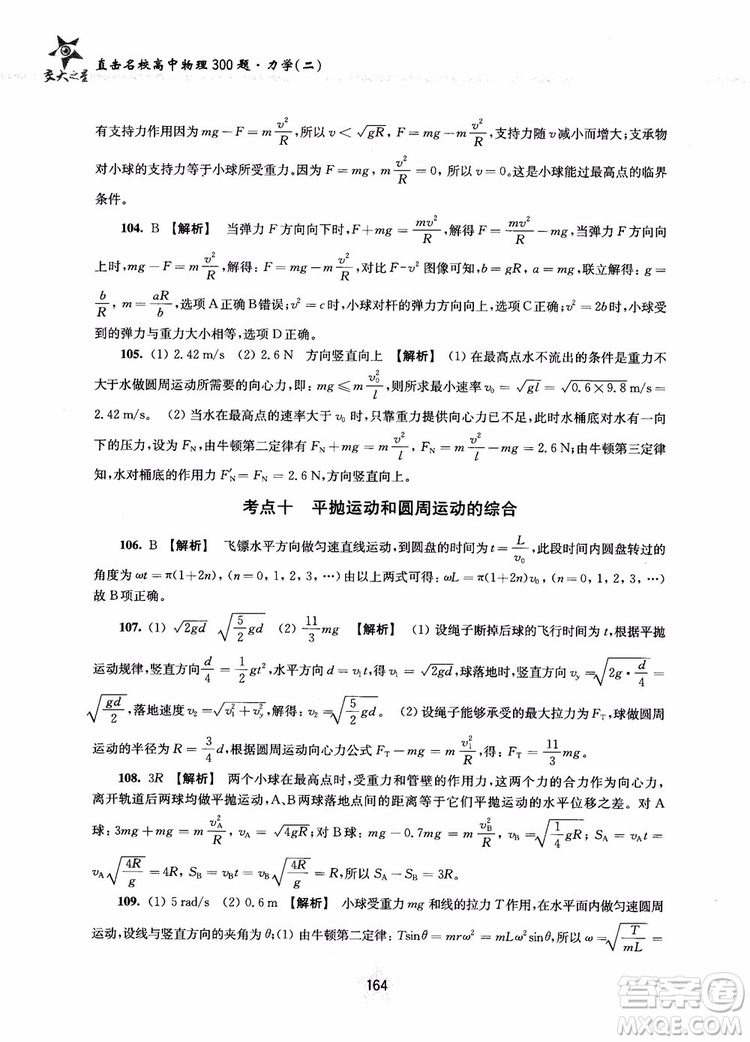 交大之星
直击名校高中物理300题·力学(二)
有支持力作用因为 mg－F＝m v²/R，所以 v＜√gR，F＝mg－m v²/R，支持力随 v 减小而增大；支承物
对小球的支持力等于小球所受重力。因为 F＝mg，m v²/R＝0，所以 v＝0。这是小球能过最高点的临界
条件。
104. B 【解析】 当弹力 F 方向向下时，F＋mg＝mv²/R，解得 F＝mv²/R－mg，当弹力 F 方向向
上时，mg－F＝m v²/R，解得：F＝mg－m v²/R，对比 F-v² 图像可知，b＝gR，a＝mg，联立解得：g＝
b/R，m＝aR/b，选项 A 正确 B 错误；v²＝c 时，小球对杆的弹力方向向上，选项 C 错误；v²＝2b 时，小球受
到的弹力与重力大小相等，选项 D 正确。
105. (1) 2.42 m/s (2) 2.6 N 方向竖直向上 【解析】 (1) 在最高点水不流出的条件是重力不
大于水做圆周运动所需要的向心力，即：mg≤m v₀²/l，则所求最小速率 v₀＝√gl＝√0.6×9.8 m/s＝
2.42 m/s。 (2) 当水在最高点的速率大于 v₀ 时，只靠重力提供向心力已不足，此时水桶底对水有一向
下的压力，设为 F_N，由牛顿第二定律有 F_N＋mg＝m v²/l，F_N＝m v²/l－mg＝2.6 N；由牛顿第三定律
知，水对桶底的作用力 F′_N＝F_N＝2.6 N，方向竖直向上。
考点十 平抛运动和圆周运动的综合
106. B 【解析】 飞镖水平方向做匀速直线运动，到圆盘的时间为 t＝L/v₀，在这段时间内圆盘转过的
角度为 ωt＝π(1＋2n)，(n＝0，1，2，3，…)由以上两式可得：ωL＝π(1＋2n)v₀，(n＝0，1，2，3，…)
故 B 项正确。
107. (1) √2gd √(5/2 gd) (2) 11/3 mg 【解析】 (1) 设绳子断掉后球的飞行时间为 t，根据平抛
运动规律，竖直方向 d/4＝1/2 gt²，水平方向 d＝v₁t，得 v₁＝√2gd，球落地时，竖直方向 v_y＝√(2g·d/4)＝
√(gd/2)，落地速度 v₂＝√(v₁²＋v_y²)，解得：v₂＝√(5/2 gd)。 (2) 设绳子能够承受的最大拉力为 F_T，球做圆周
运动的半径为 R＝3/4 d，根据圆周运动向心力公式 F_T－mg＝m v₁²/R，得：F_T＝11/3 mg。
108. 3R 【解析】 两个小球在最高点时，受重力和管壁的作用力，这两个力的合力作为向心力，
离开轨道后两球均做平抛运动，A、B 两球落地点间的距离等于它们平抛运动的水平位移之差。对 A
球：3mg＋mg＝m v_A²/R v_A＝√4gR；对 B 球：mg－0.75mg＝m v_B²/R v_B＝√(1/4 gR)；S_A＝v_A t＝
v_A√(4R/g)＝4R，S_B＝v_B t＝v_B√(4R/g)＝R；S_A－S_B＝3R。
109. (1) 5 rad/s (2) 0.6 m 【解析】 小球受重力 mg 和线的拉力 T 作用，在水平面内做匀速圆周
运动，设线与竖直方向的夹角为 θ；(1) 由牛顿第二定律：Tsinθ＝mrω²＝mω²lsinθ，所以 ω＝√(T/ml)＝
164
作业答案圈
MXQE.COM